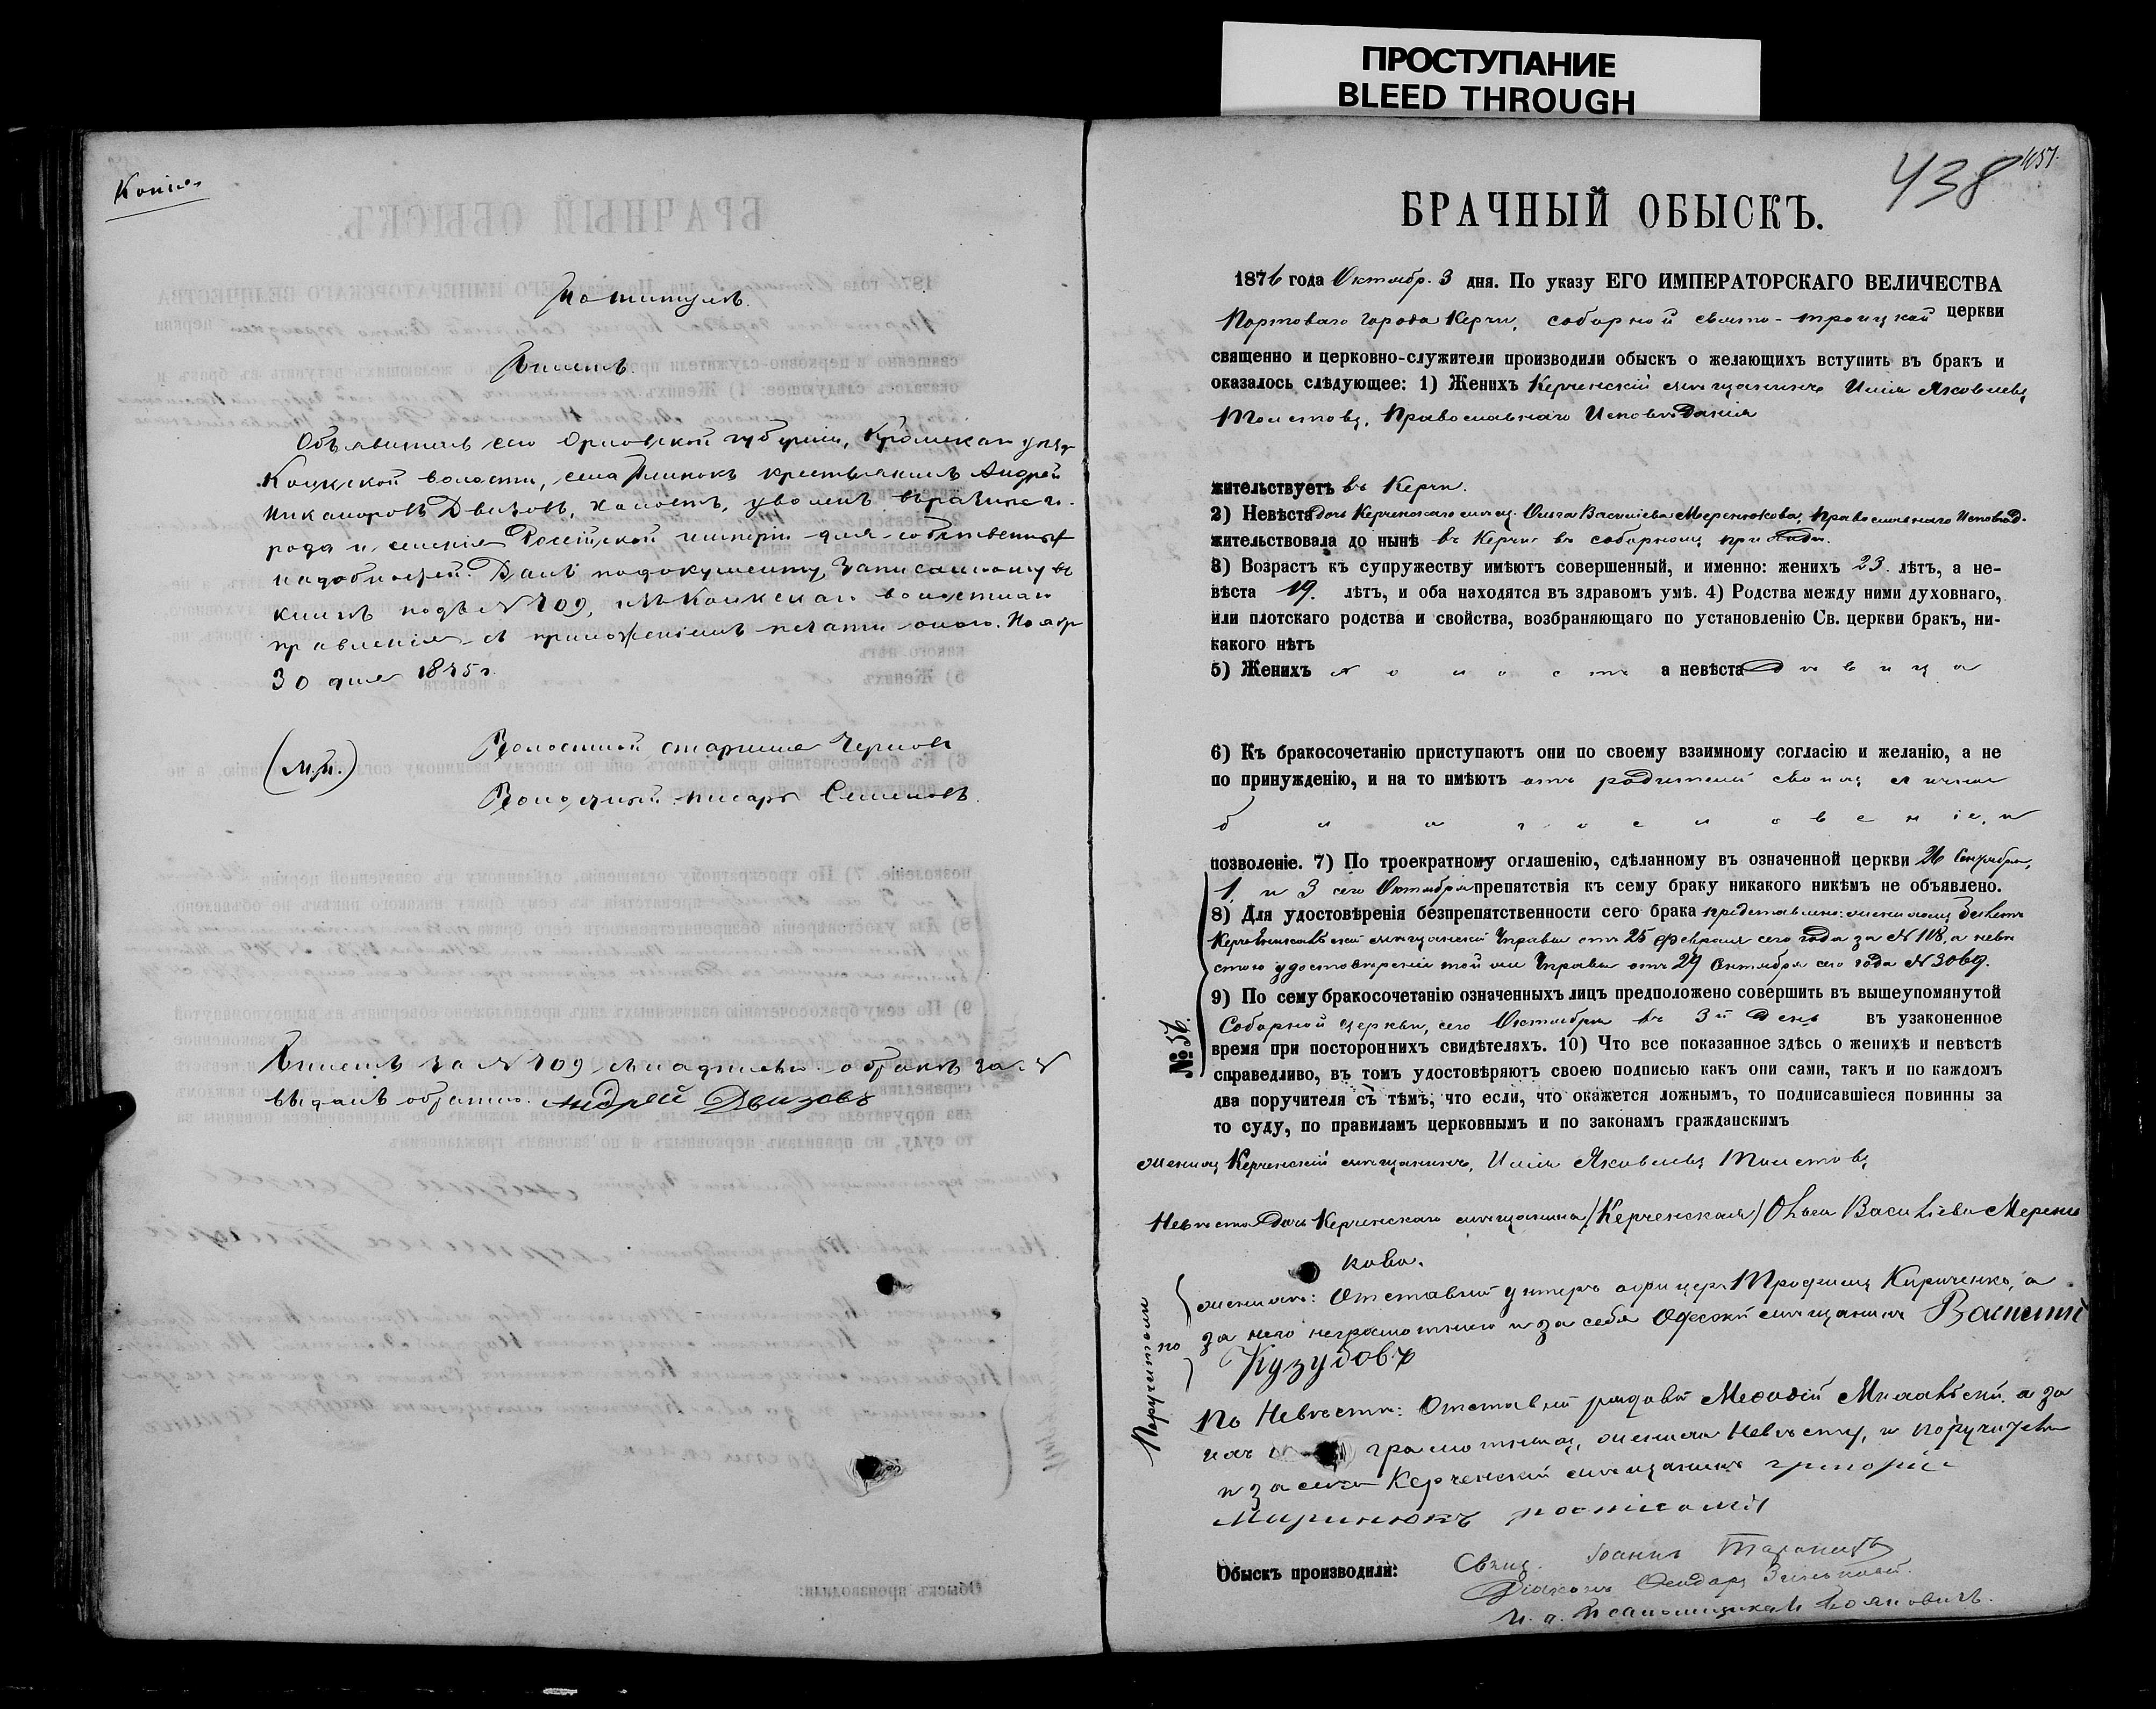 ПРОСТУПАНИЕ
BLEED THROUGH
Копія
По титулѣ.
Билетъ.
Объявитель сего Орловской губерніи, Кромскаго уѣзда
волости, села крестьянинъ Андрей
Никаноровъ Двизовъ, холостъ, уволенъ въ разные го-
рода и селенія Россійской имперіи для собственныхъ
надобностей. Данъ по документу, записанному въ
книгѣ подъ № 709, волостнаго
правленія съ приложеніемъ печати онаго. Ноябр
30 дня 1875 г.
(М.П.)
Волостной старшина Черновъ
Волостной писарь Семеновъ.
Билетъ за № 709 съ надписью о бракѣ за №
выданъ обратно. Андрей Двизовъ
438
457.
БРАЧНЫЙ ОБЫСКЪ.
1876 года Октябр. 3 дня. По указу ЕГО ИМПЕРАТОРСКАГО ВЕЛИЧЕСТВА
Портоваго города Керчи, соборной свято-троицкой церкви
священно и церковно-служители производили обыскъ о желающихъ вступить въ бракъ и
оказалось слѣдующее: 1) Женихъ Керченскій мѣщанинъ Илія Яковлевъ
Толстовъ, Православнаго Исповѣданія
жительствуетъ въ Керчи.
2) Невѣста дочь Керченскаго мѣщ. Ольга Васильева Меренюкова, Православнаго Исповѣд.
жительствовала до нынѣ въ Керчи въ соборномъ приходѣ.
3) Возрастъ къ супружеству имѣютъ совершенный, и именно: женихъ 23. лѣтъ, а не-
вѣста 19. лѣтъ, и оба находятся въ здравомъ умѣ. 4) Родства между ними духовнаго,
или плотскаго родства и свойства, возбраняющаго по установленію Св. церкви бракъ, ни-
какого нѣтъ
5) Женихъ холостъ а невѣста дѣвица
6) Къ бракосочетанію приступаютъ они по своему взаимному согласію и желанію, а не
по принужденію, и на то имѣютъ отъ родителей своихъ личное
благословеніе, и
позволеніе. 7) По троекратному оглашенію, сдѣланному въ означенной церкви 26 Сентября,
1, и 3 сего Октября препятствія къ сему браку никакого никѣмъ не объявлено.
8) Для удостовѣренія безпрепятственности сего брака представлено: женихомъ билетъ
Керчь-Еникальской мѣщанской Управы отъ 25 Февраля сего года за № 118, а невѣ
стою удостовѣреніе той же Управы отъ 29 Сентября сего года № 3069.
9) По сему бракосочетанію означенныхъ лицъ предположено совершить въ вышеупомянутой
Соборной церкви, сего Октября въ 3й день въ узаконенное
время при постороннихъ свидѣтеляхъ. 10) Что все показанное здѣсь о женихѣ и невѣстѣ
справедливо, въ томъ удостовѣряютъ своею подписью какъ они сами, такъ и по каждомъ
два поручителя съ тѣмъ, что если, что окажется ложнымъ, то подписавшіеся повинны за
то суду, по правиламъ церковнымъ и по законамъ гражданскимъ
№ 56.
женихъ Керченскій мѣщанинъ, Илія Яковлевъ Толстовъ,
Невѣста дочь Керченскаго мѣщанина /Керченская/ Ольга Васильева Мереню
кова.
Поручители
по
женихѣ: Отставной унтеръ офицеръ Трофимъ Кириченко, а
за него неграмотнаго и за себя Одескій мѣщанинъ Василій
Кузубовъ
По Невѣстѣ: Отставной рядовой Меѳодій а за
нихъ грамотныхъ, жениха Невѣсту, и поручителя
и за себя Керченскій мѣщанинъ Григорій
Миринюкъ росписался
Обыскъ производили:
Свящ. Іоаннъ
Діаконъ Ѳеодоръ
И. д. Псаломщика